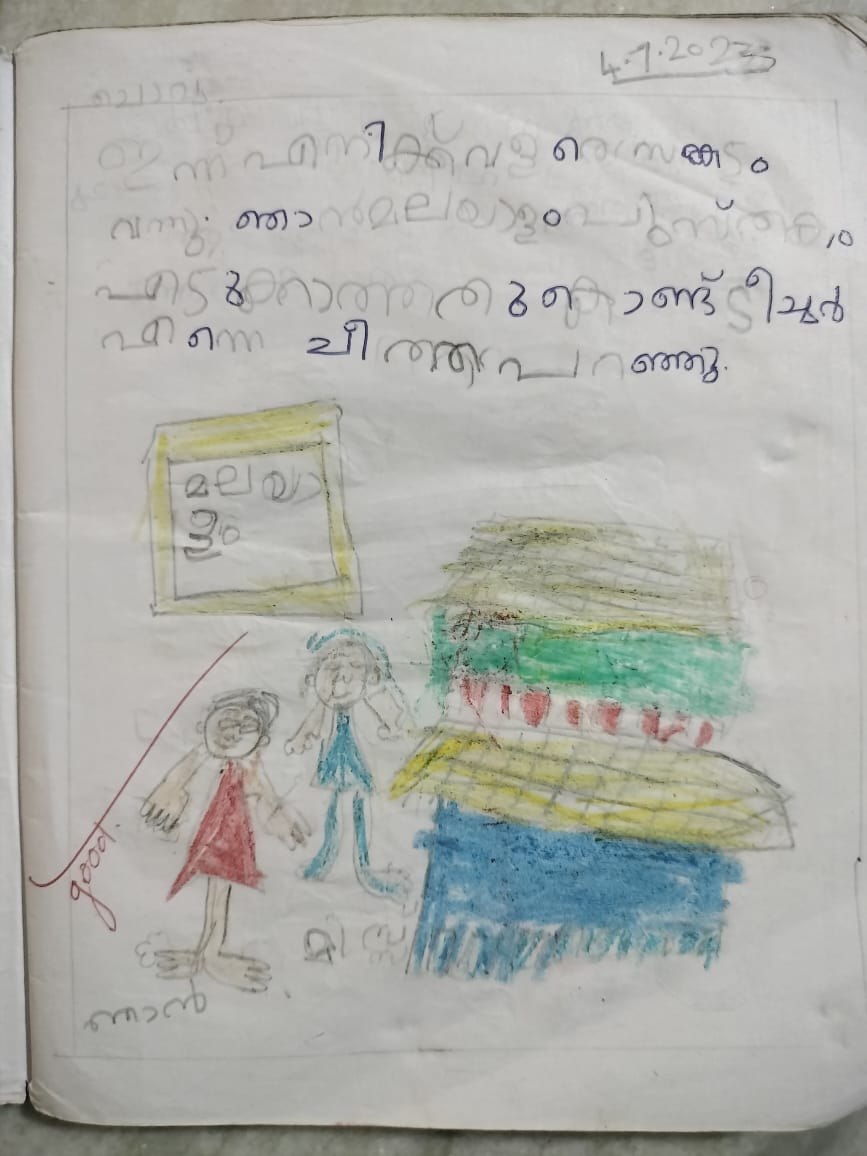 4.7.2023
ചൊവ്വ
ഇന്ന് എനിക്ക് വളരെ സങ്കടം
വന്നു. ഞാൻ മലയാളം പുസ്തകം
എടുക്കാത്തതുകൊണ്ട് ടീച്ചർ
എന്നെ ചീത്ത പറഞ്ഞു.
മലയാ
ളം
good.
മിസ്സ്
ഞാൻ